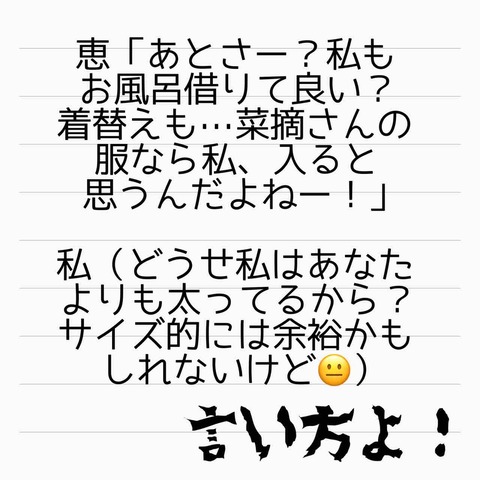 恵「あとさー？私も
お風呂借りて良い？
着替えも…菜摘さんの
服なら私、入ると
思うんだよねー！」
私（どうせ私はあなた
よりも太ってるから？
サイズ的には余裕かも
しれないけど😐）
言い方よ！